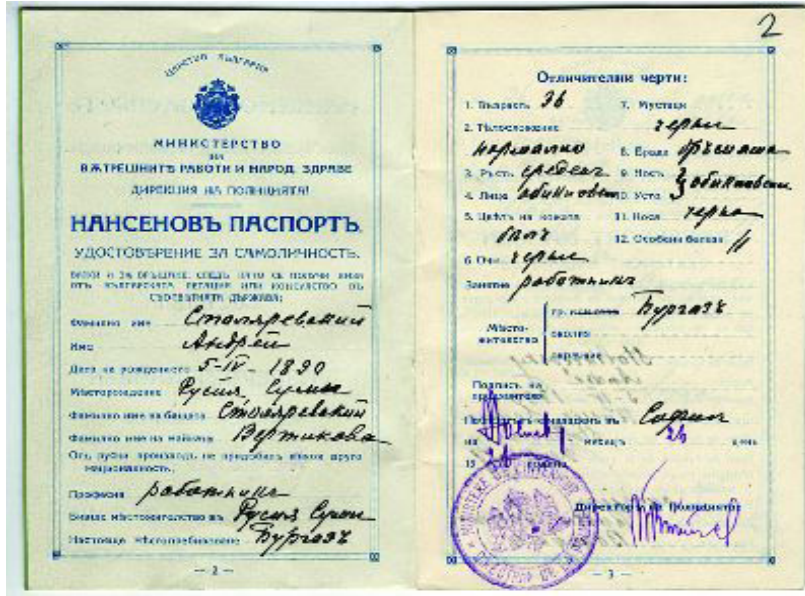 2
ЦАРСТВО БЪЛГАРИЯ
МИНИСТЕРСТВО
НА
ВѪТРЕШНИТѢ РАБОТИ И НАРОД. ЗДРАВЕ
ДИРЕКЦИЯ НА ПОЛИЦИЯТА
НАНСЕНОВЪ ПАСПОРТЪ.
УДОСТОВѢРЕНИЕ ЗА САМОЛИЧНОСТЬ.
ВАЖИ И ЗА ВРЪЩАНЕ, СЛЕДЪ КАТО СЕ ПОЛУЧИ ВИЗА
ОТЪ БЪЛГАРСКАТА ЛЕГАЦИЯ ИЛИ КОНСУЛСТВО ВЪ
СЪОТВЕТНАТА ДЪРЖАВА:
Фамилно име Столяревский
Име Андрей
Дата на рождението 5-IV-1890
Месторождение Русия, Сумы
Фамилно име на бащата Столяревский
Фамилно име на майката Вертикова
Отъ руски произходъ, не придобилъ никоя друга
националность.
Професия работникъ
Бивше мѣстожителство въ Русия Сумы
Настояще мѣстопребиваване Бургазъ
— 2 —
Отличителни черти:
1. Възрасть 36
2. Тѣлосложение нормално
3. Ръстъ среденъ
4. Лице обикновен
5. Цвѣтъ на кожата бѣлъ
6. Очи черни
7. Мустаци черни
8. Брада бръсната
9. Носъ
10. Уста обикновени
11. Коса черна
12. Особени белези //
Занятие работникъ
Мѣсто-
жителство
гр. Бургазъ
околия
Подпись на
притежателя
Паспортътъ е издаденъ въ София
на 26 месецъ день
19 26 година
Директоръ на Полицията:
— 3 —